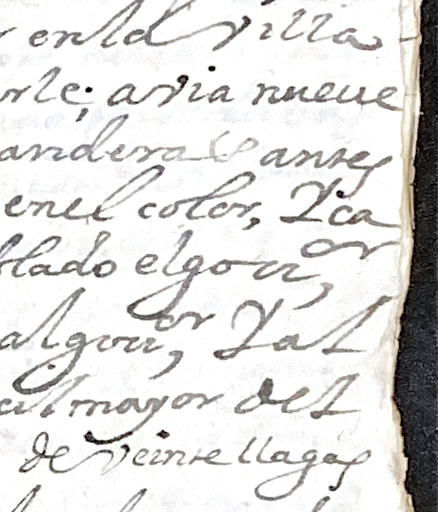 en la Villa
rte; avia nueve
anderas antes
en el color, Y ca
blado el gov.or,
al gov.or, Y al
mayor del
de veinte llagas